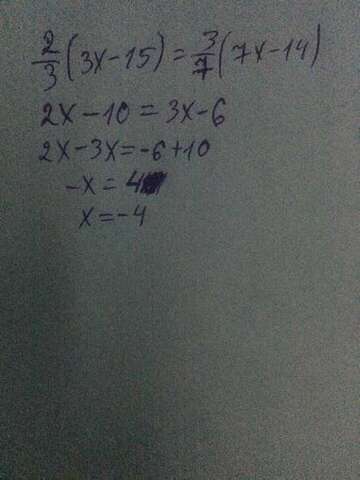 2/3(3x-15)=3/7(7x-14)
2x-10=3x-6
2x-3x=-6+10
-x=4
x=-4